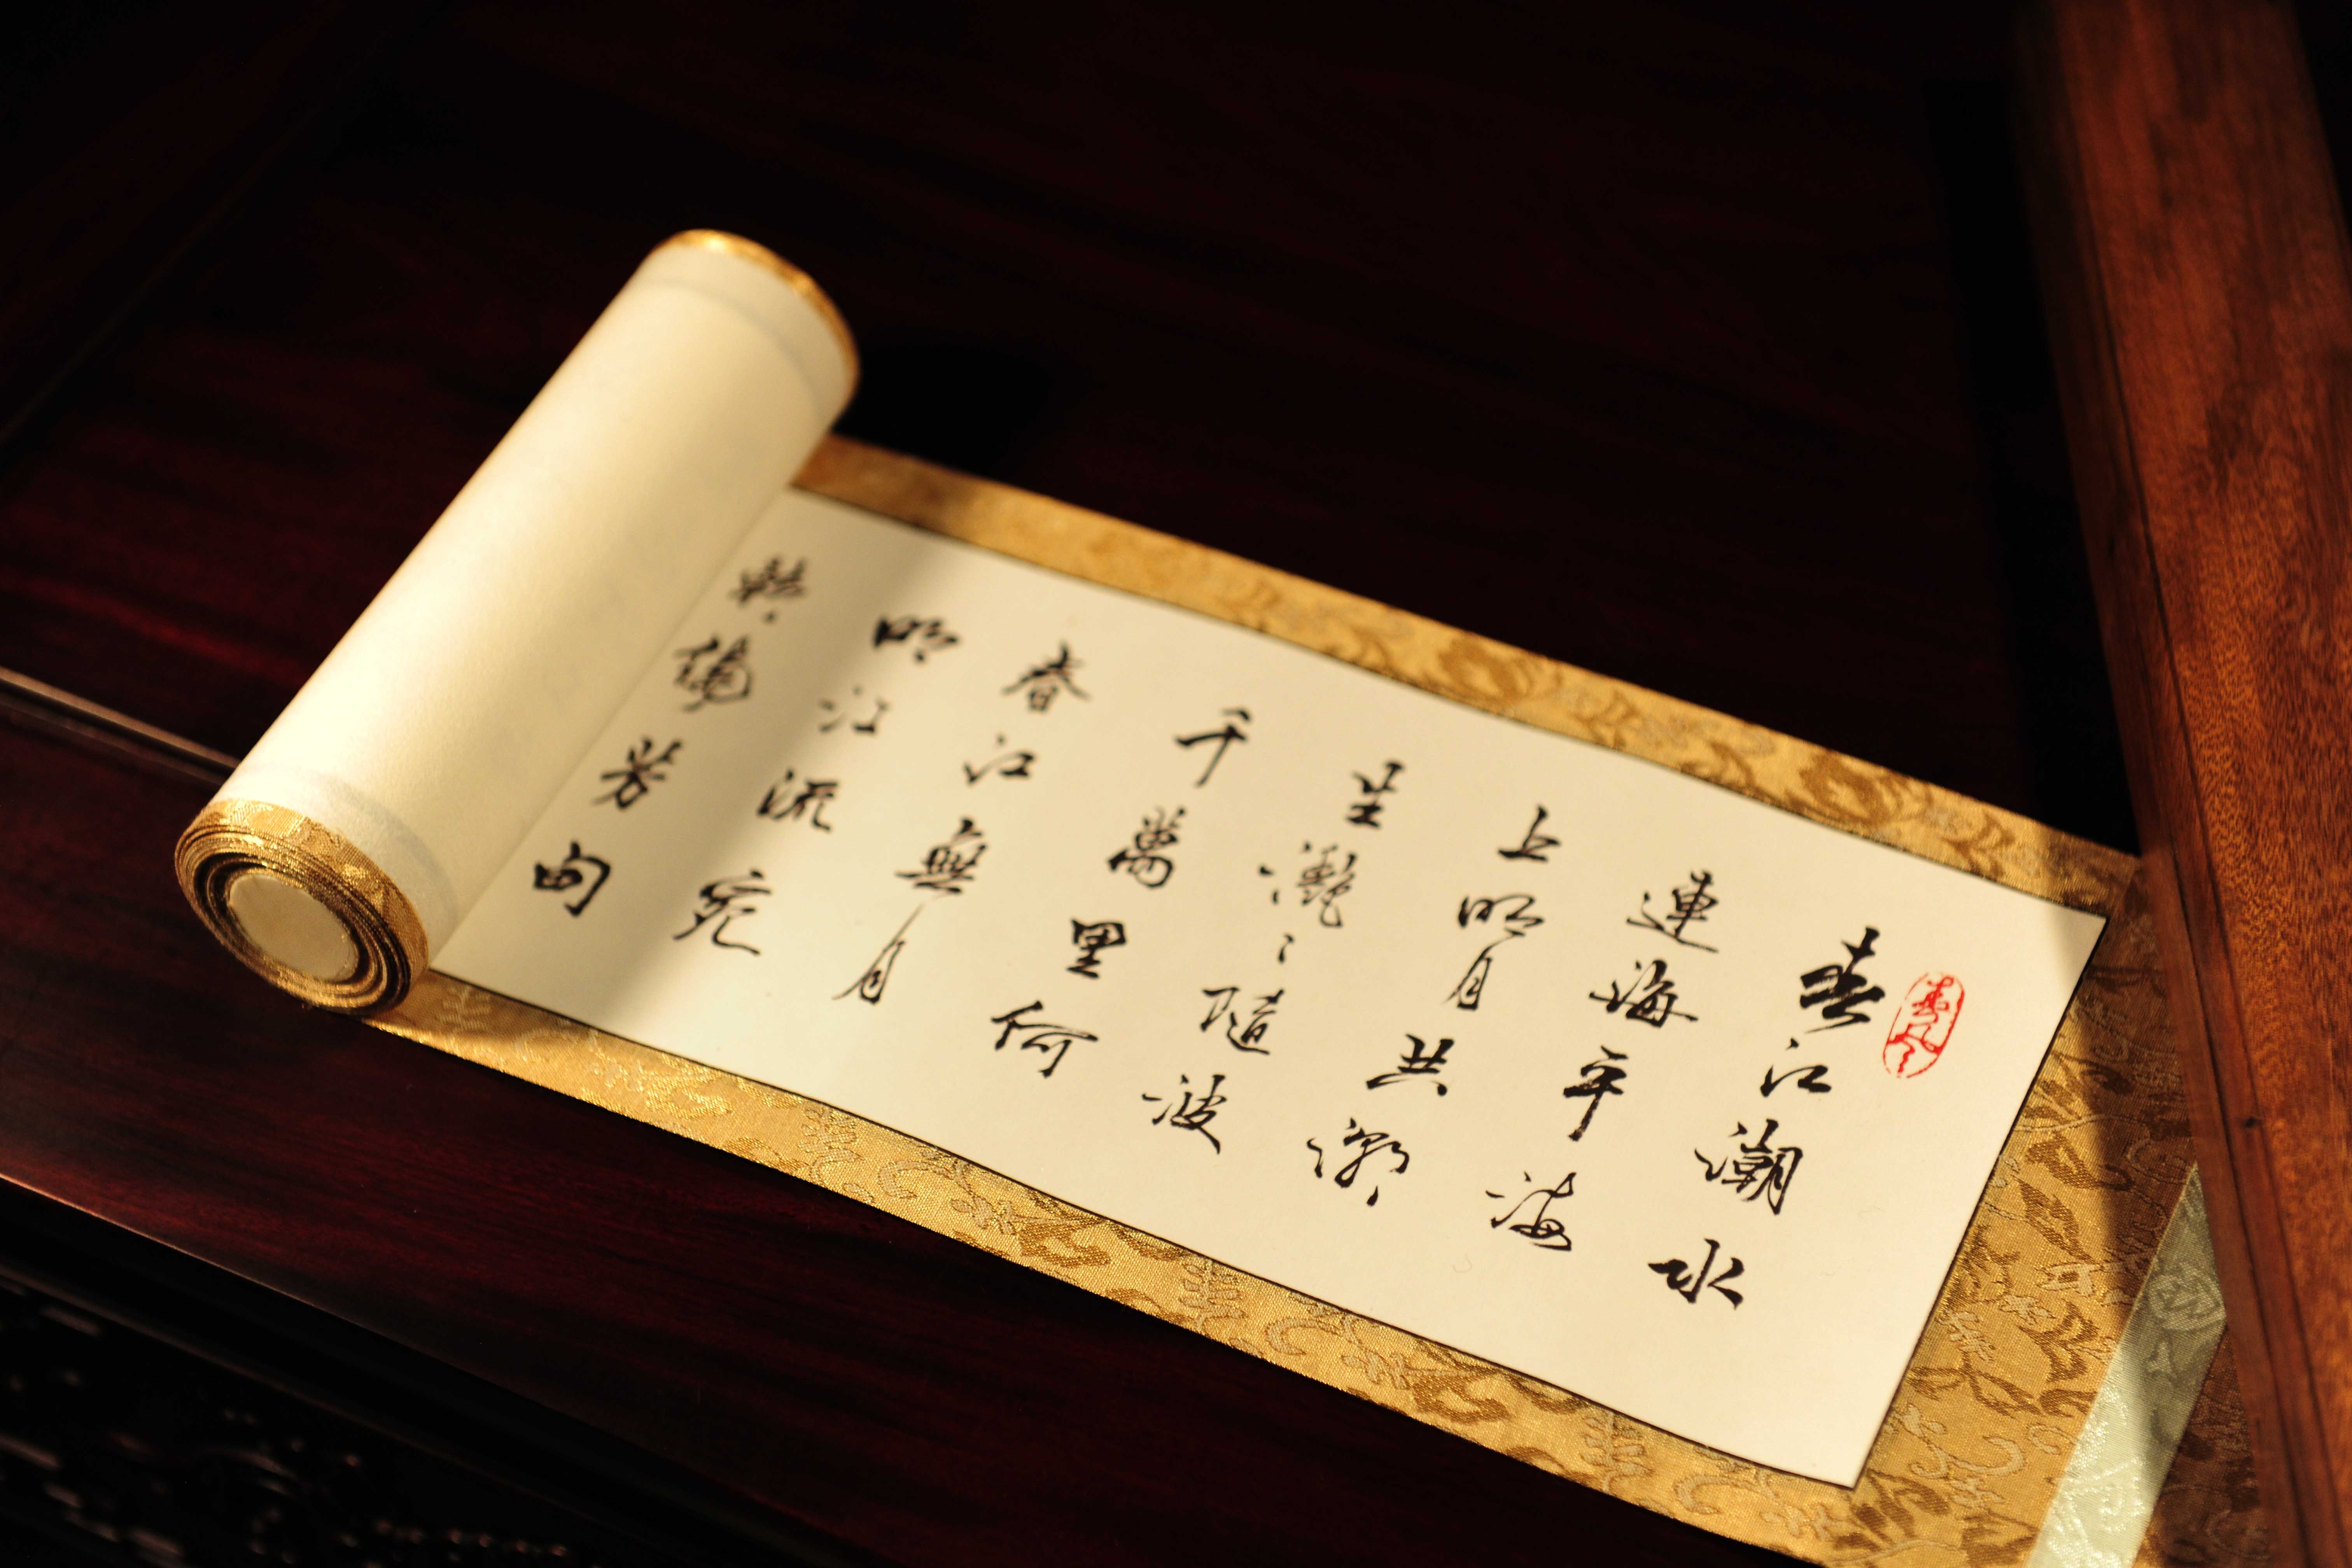 春江潮水
連海平海
上明月共潮
生灧〻隨波
千萬里何
春江無月
明江流宛
轉繞芳甸